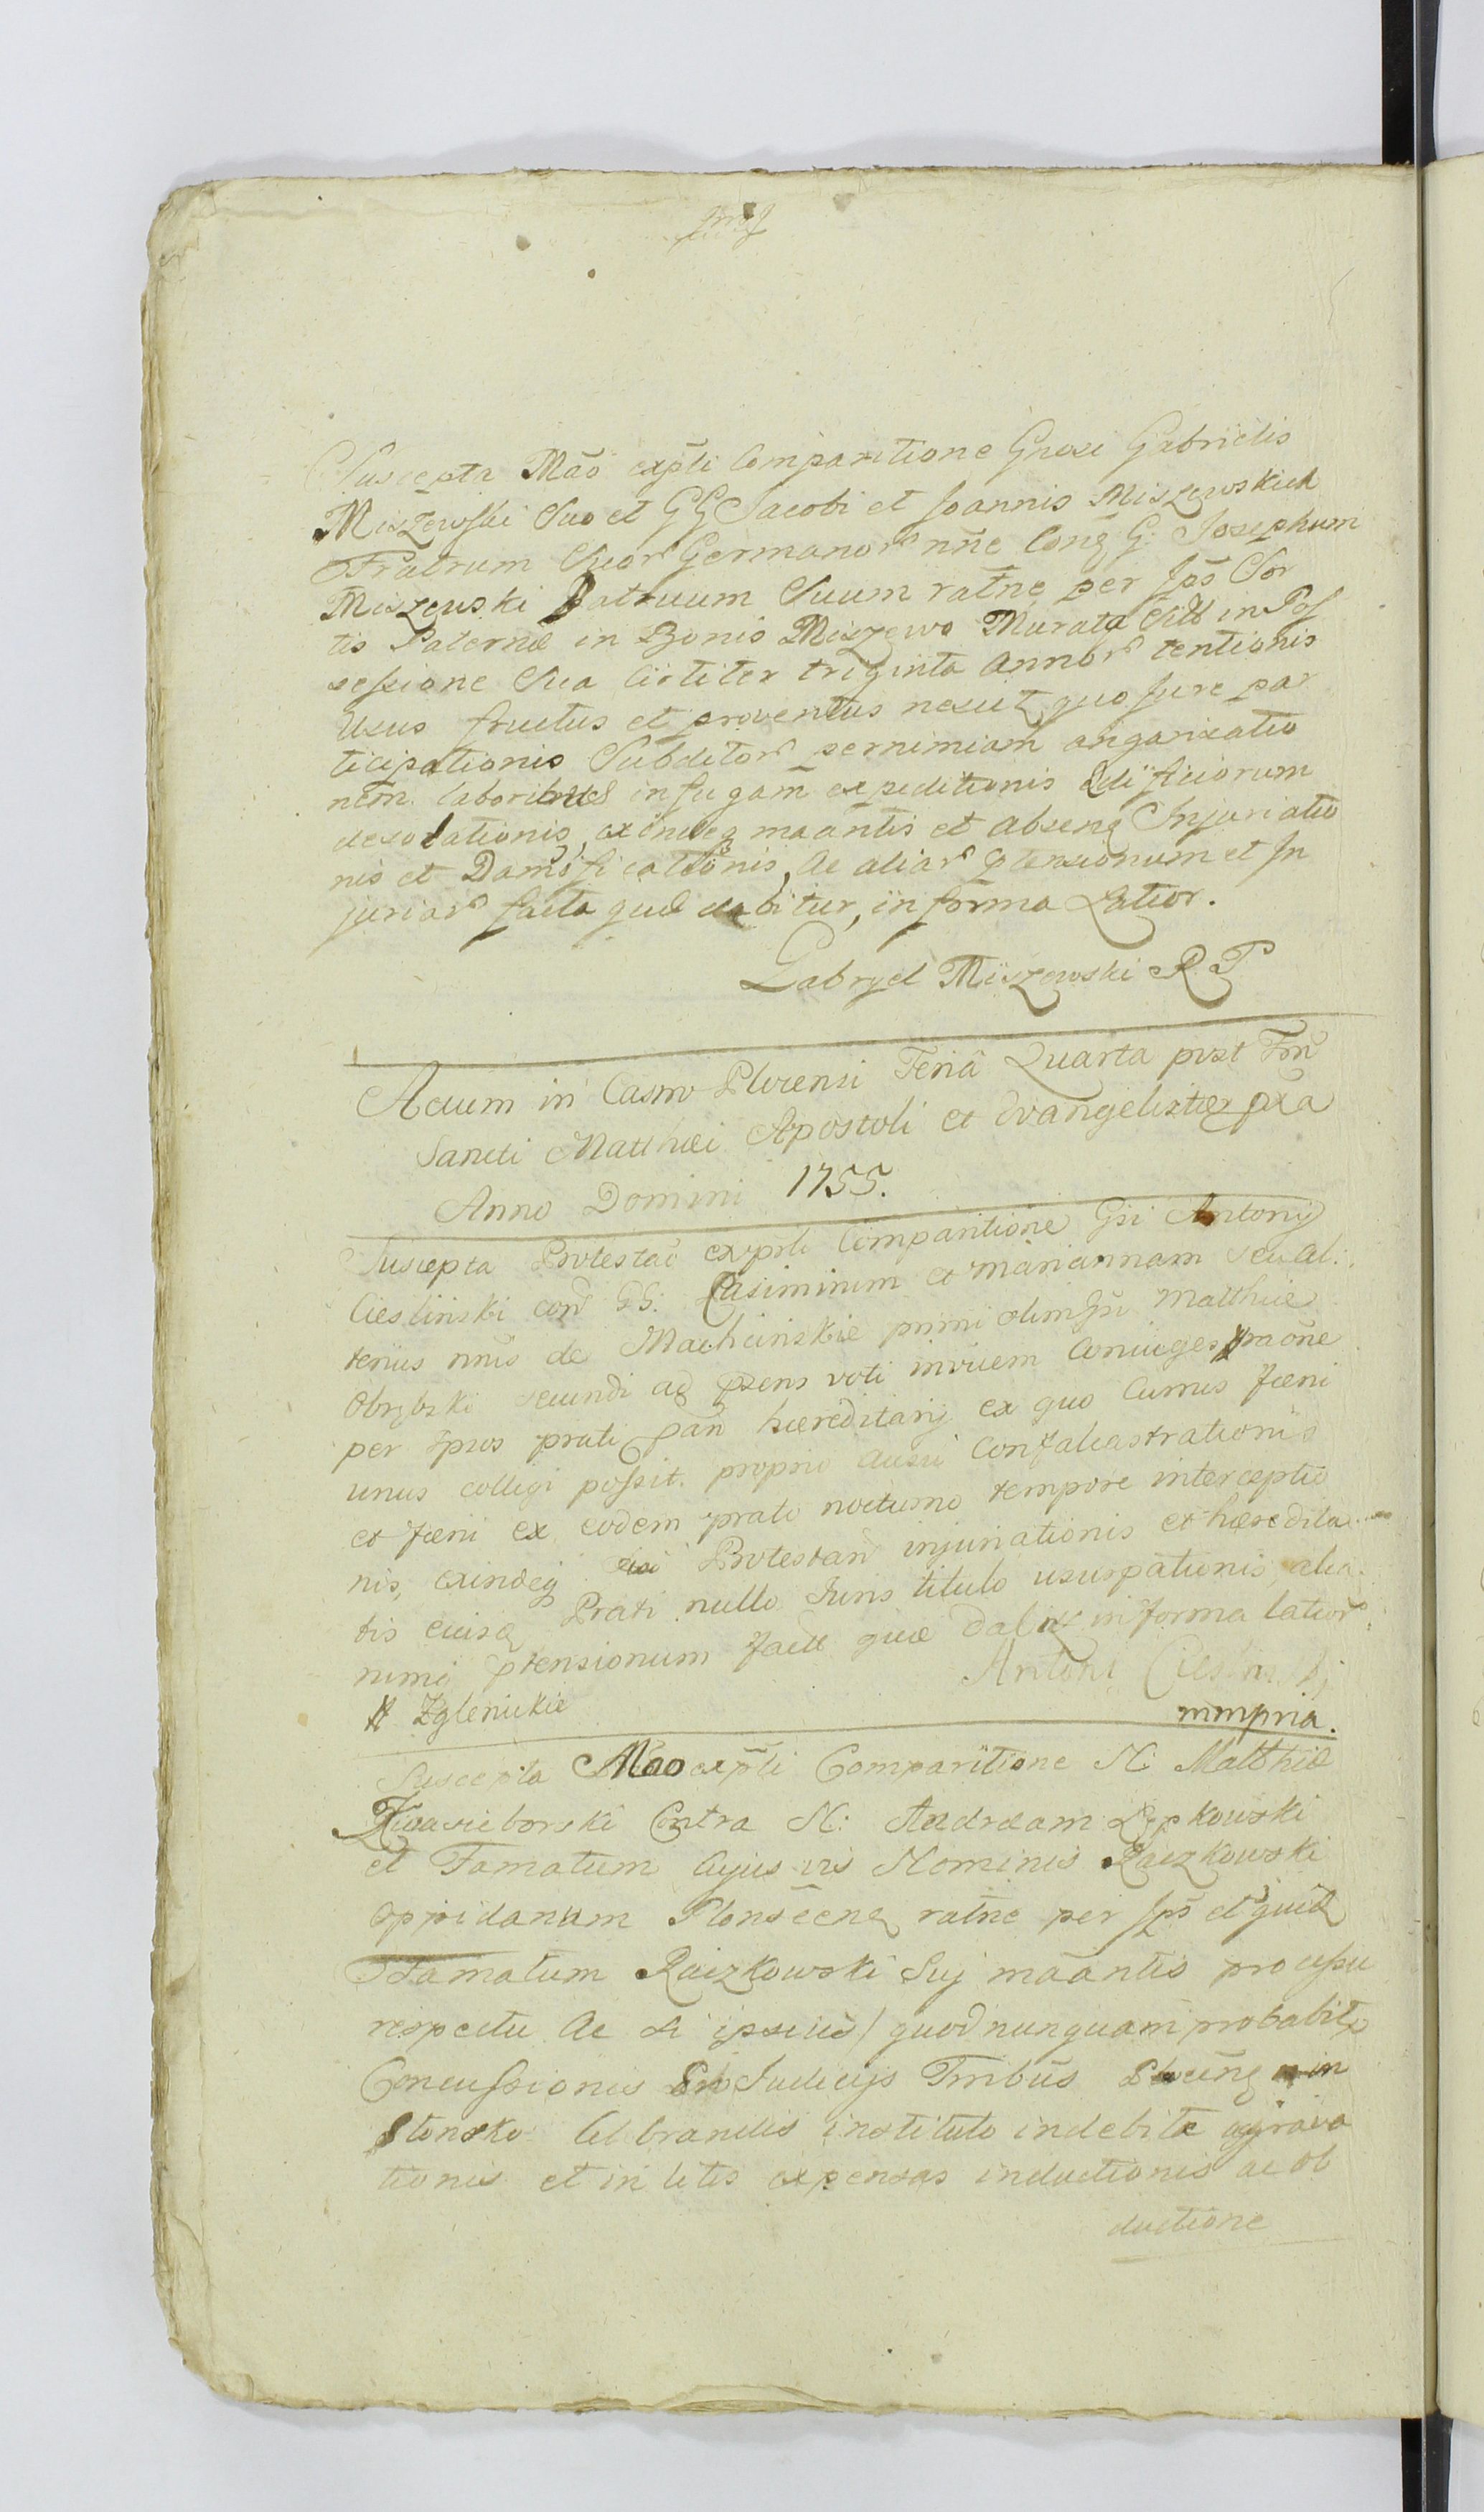 Suscepta Mão exp̃li Comparitione Gñosi Gabrielis
Miszewski Suo et GG Jacobi et Joannis Miszewskich
Fratrum Suor Germanor nñe Conq G: Josephum
Miszewski Patruum Suum ratñe per Jps̃ Sor
tis Paternæ in Bonis Miszewo Murata in Pos
sessione Sua Circiter triginta Annor tentionis
Usus fructus et proventus quo Jure par
ticipationis Subditor pernimiam angarizatio
nem laboribus in fugam expeditionis Ædificiorum
desolationis, exindeq maãntis et Absenq Injuriatio
nis et Damnificationis, Ac aliar p̃tensionum et In
juriar facta quæ dabitur, in forma Latior.
Gabryel Miszewski R T
Actum in Castro Plocensi Feriâ Quarta post Fes̃
Sancti Matthæi Apostoli et Evangelistæ pxa
Anno Domini 1755.
Suscepta Protestaõ exp̃li Comparitione Gsi Antonij
Ciesliński con̄ GG: Casimirum et Mariannam seu al:
terius nñis de Machcińskie primi olim Gsi Matthiæ
Obrębski secundi aq p̃sens voti invicem Coniuges # raõne
per Ipsos prati hæreditarij ex quo Currus fœni
unus colligi possit. proprio ausu Confalcastrationis
et fœni ex eodem prato nocturno tempore interceptio
nis, exindeq Protestañ injuriationis et hæredita
tis eiusq Prati nullo Juris titulo usurpationis, alia
rumq p̃tensionum factæ quæ dabitur in forma latior
Antoni Ciesliński
# Zglenickie
mmpria.
Suscepta Mão exp̃li Comparitione N: Matthiæ
Kwasieborski Contra N: Andream Lępkowski
et Famatum Cujus vis Nominis Raczkowski
oppidanum Plonscenq ratñe per Jps̃ et quid
Famatum Raczkowski Suj maãntis
respectu Ac si ipsius / quod nunquam probabitr
Concussionis in Judicijs Tribus Plocenq in
Plonsko Celebrandis instituto indebitæ aggrava
tionis et in litis expensas inductionis ac ob
ductione